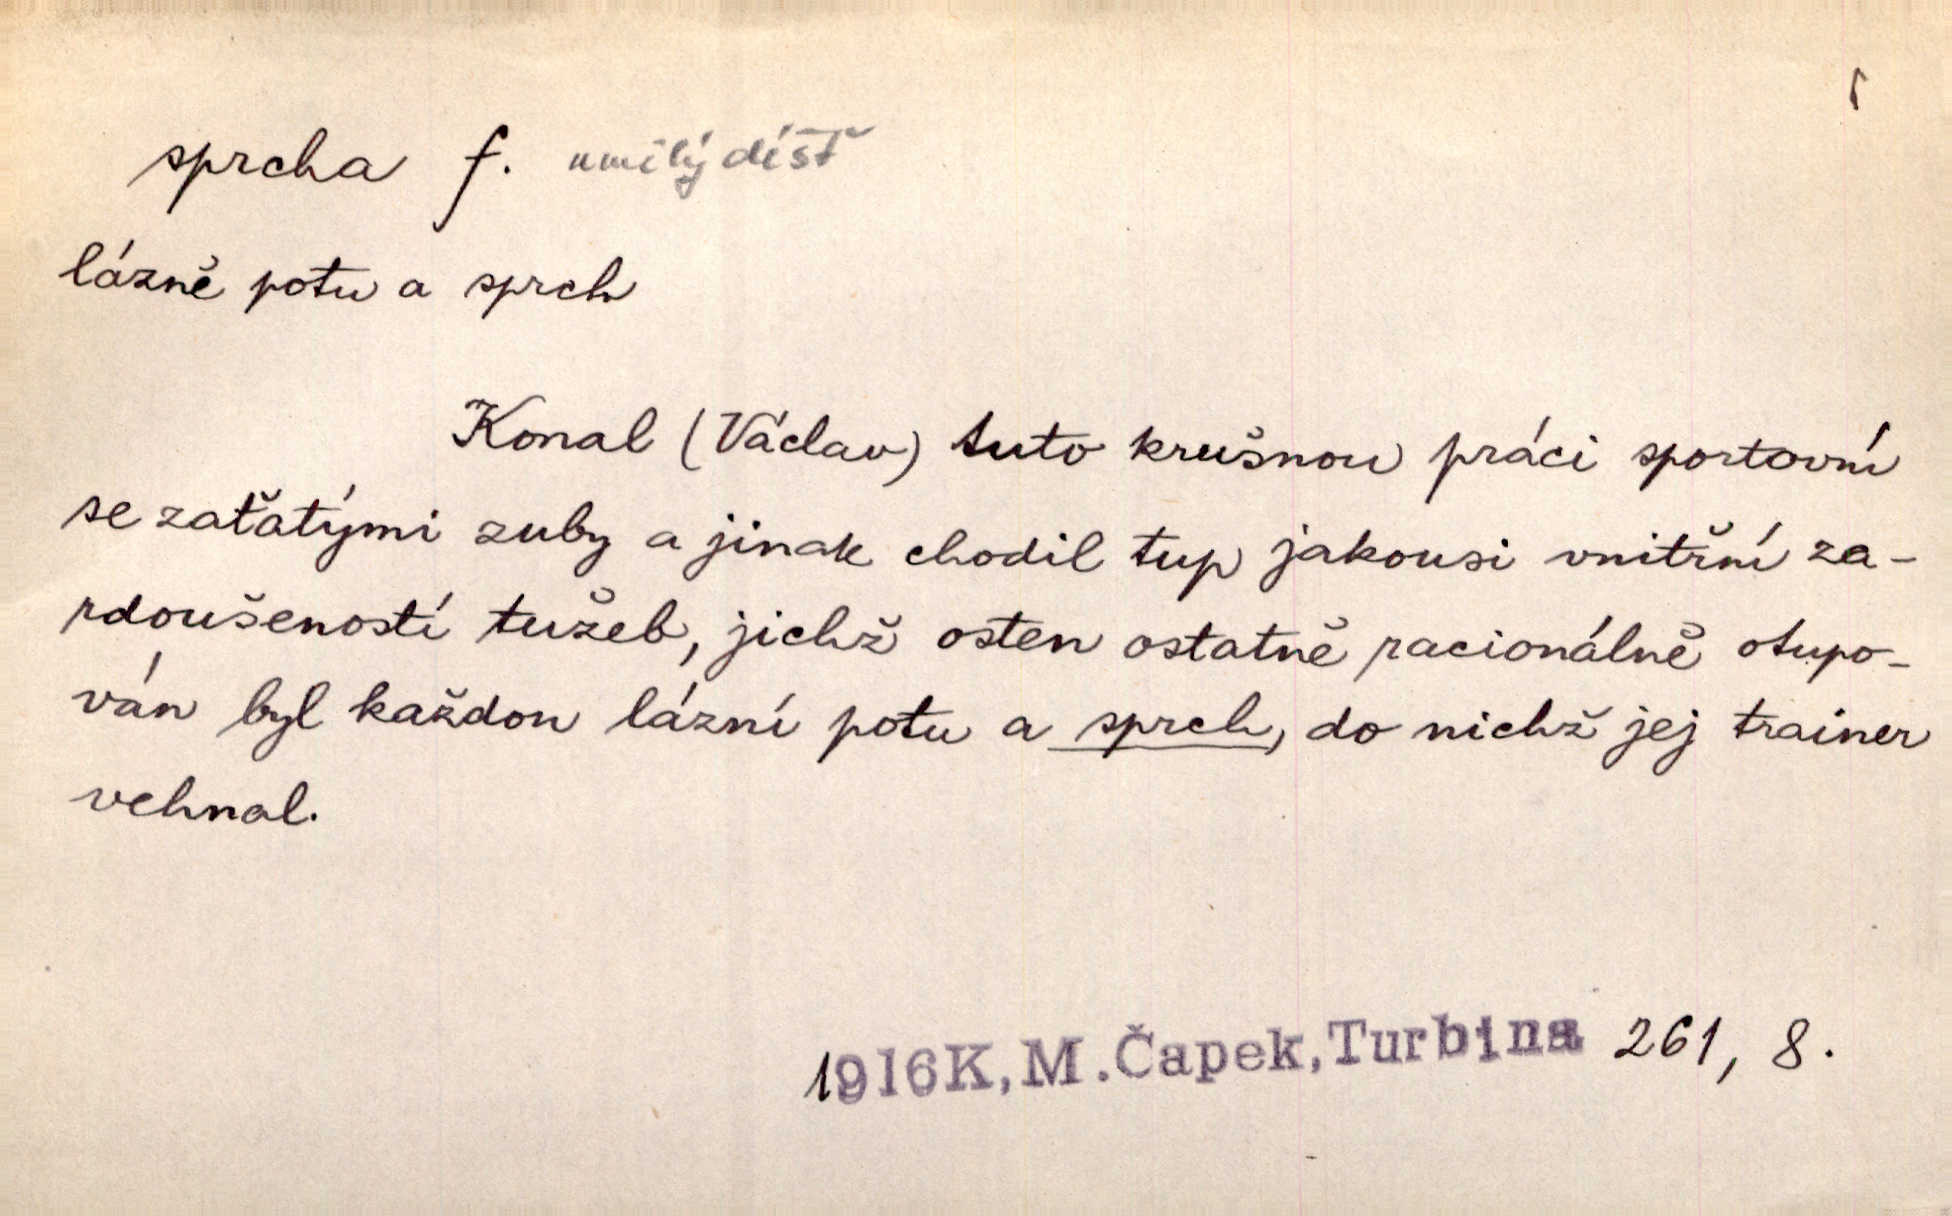 sprcha f. umělý déšť
lázně potu a sprch
Konal (Václav) tuto krušnou práci sportovní
se zaťatými zuby a jinak chodil tup jakousi vnitřní za-
rdoušeností tužeb, jichž osten ostatně racionálně otupo-
ván byl každou lázní potu a sprch, do nichž jej trainer
vehnal.
1916K,M.Čapek,Turbina 261, 8.